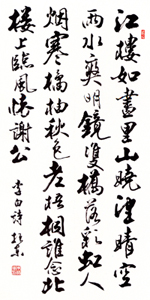 江樓如畫里山曉望晴空
兩水夾明鏡雙橋落彩虹人
烟寒橘柚秋色老梧桐誰念北
樓上臨風懷謝公
李白詩